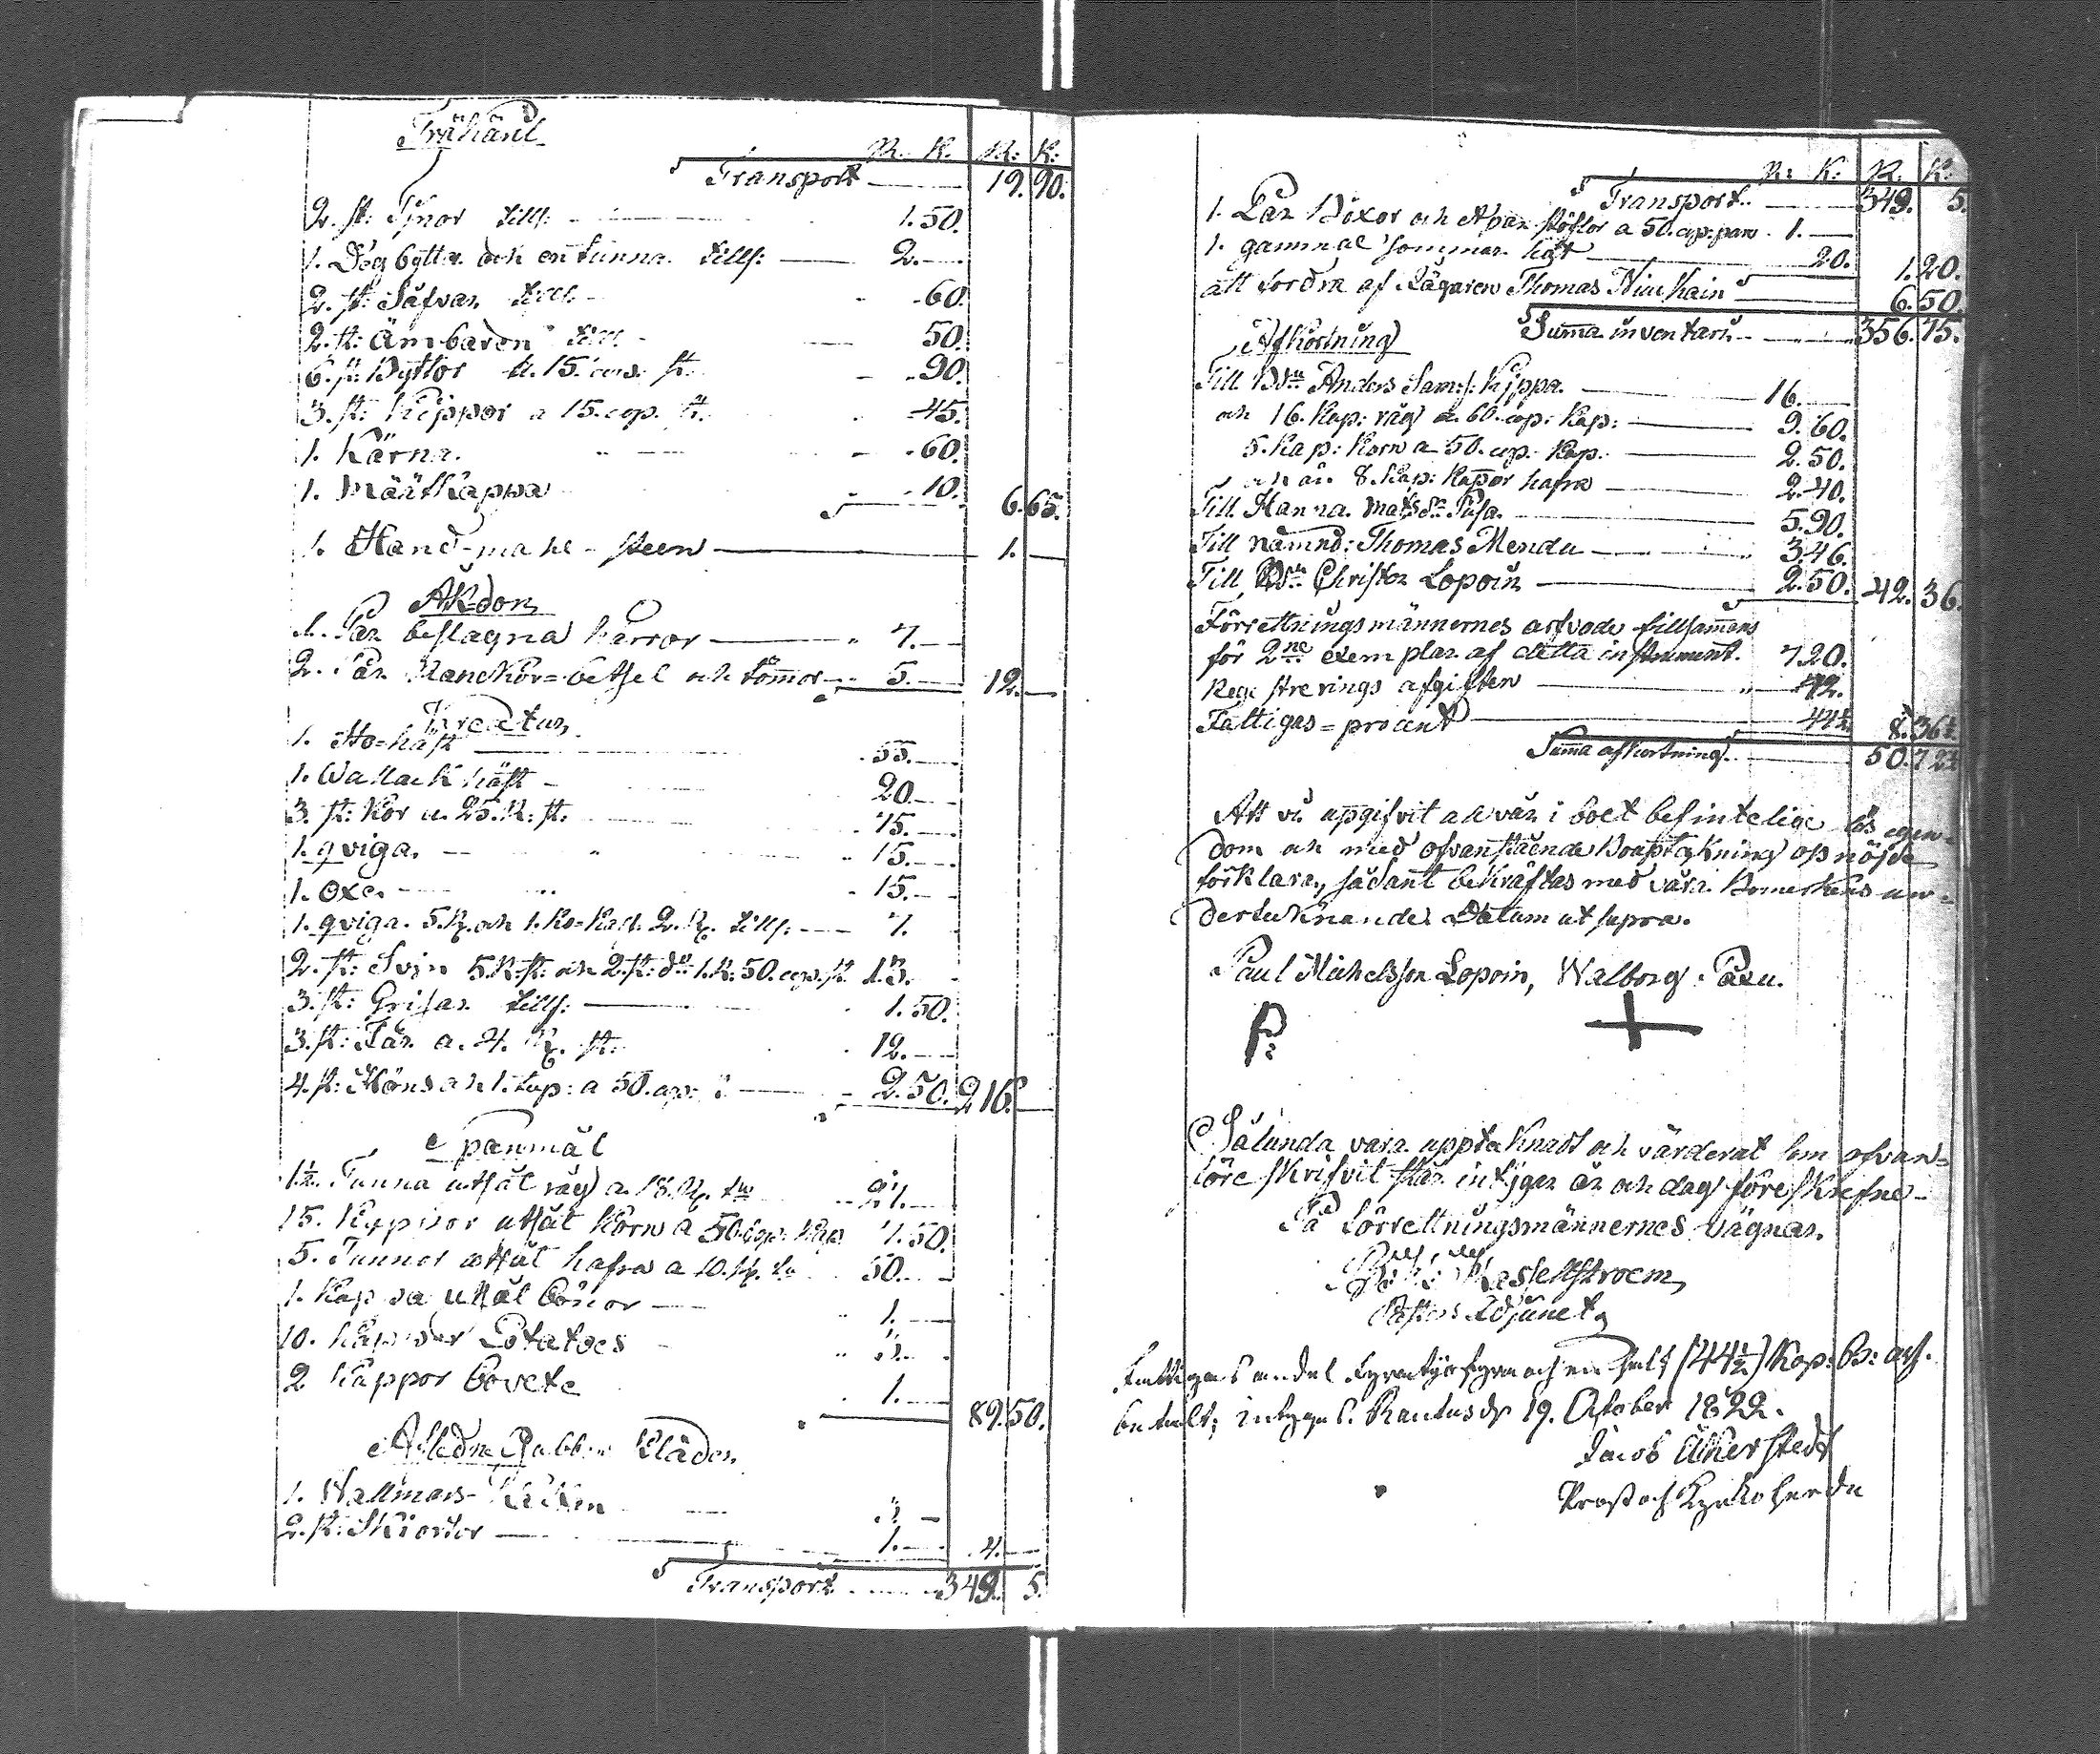 Trähäril
R. K. R: K:
Transport 19. 90.
2. st: Tjnor tills: 1. 50.
1. Deg bytta och en tunna tills: 2.
2. st: Såfvar tills 60.
2. st: Ämbaren tills 50.
6. st: Byttor a. 15. cop. st. 90.
3. st: Kippor a 15. cop. st. 45.
1. Kärna. 60.
1. Määtkappa 10. 6. 65.
1. Hand-mahl-steen 1.
Åkdon
1. Par beslagna kärror 7.
2. Par Ranckor=betsel och tömor 5. 12.
Kreatur
1. Sto=häst 55.
1. Wallack häst 20.
3. st: Kor a. 25. R: st. 75.
1. qviga. 15.
1. Oxe. 15.
1. qviga. 5. R. och 1. Ko=Kalf. 2. R. tills: 7.
2. st: Svin 5. R. st: och 2. st: do 1. R: 50. cop. st. 13.
3. st: Grisar tills: 1. 50.
3. st: Får a. 4. R. st: 12.
4. st: Höns och 1. tup: a 50. cop: 2. 50. 216.
Spanmål
1½. Tunna utsåt råg a. 18. R. tn 27.
15. Kappor utsåt Korn a 50. cop: Kap 7. 50.
5. Tunnor utsåt hafra a 10. R. tn 50.
1. Kappa utsåt bönor 1.
10. Kappor Potatoes 3.
2 Kappor bovete 1.
89. 50.
Afledne Gubben Kläder
1. Wallmars- 3.
2. st: Skiortor 1. 4.
Transport 349. 5.
R: K: R. K:
Transport 349. 5.
1. Par Böxor och A par stöflor a 50. cop: par 1.
1. gammal sommar hatt 20. 1. 20.
att fordra af Rågaren Thomas Niukain 6. 50.
Summa inventarii 356. 75.
Afkortning
Till Bdn Anders Sams: Kippa. 16.
och 16. Kap: råg a. 60. cop: Kap: 9. 60.
5. Kap: Korn a 50. cop. Kap. 2. 50.
och än 8. Kap: Kapor hafra 2. 40.
Till Hanna Matsdr Pusa. 5. 90.
Till nämnd: Thomas Mendu 3. 46.
Till Bdn Christer Lopoin 2. 50. 42. 36.
Förrettningsmännernes arfvode tillsammans
för 2ne exemplar af detta instrument. 7. 20.
Registrerings afgiften 72.
Fattigas=procent 44½ 8. 36½
Summa afkortning 50. 72½
Att vi uppgifvit all vår i boet befintelige lös egen=
dom och med ofvanstående Bouptekning oss nöjde
förklara, sådant bekräftas med våra Bomerkens un=
dertecknande Datum ut supra.
Paul Michelsson Lopoin, Walborg Paxu.
P: +
Sålunda vara upptecknadt och värderat som ofvan=
före skrifvit står intygar år och dag föreskrefne
På förrettningsmännernes vägnar.
Hasselstroem,
Pastors Adjunct
Fattigas andel fyratijofyra och en half (44½) Kop: B: ass.
betalt; intygas. Rautus d. 19. October 1822.
Jacob Åkerstedt
Prost och Kyrkoherde